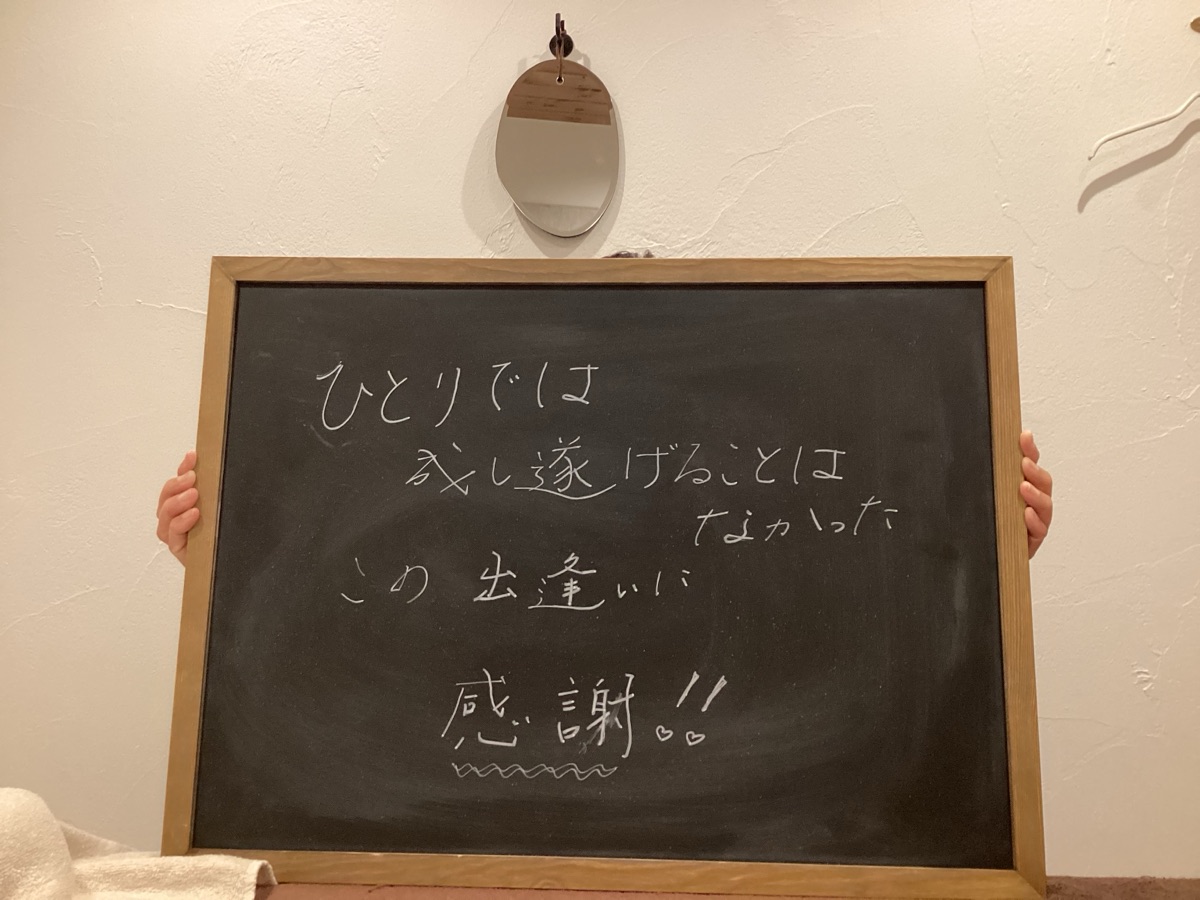 ひとりでは
成し遂げることは
なかった
この 出逢いに
感謝!!